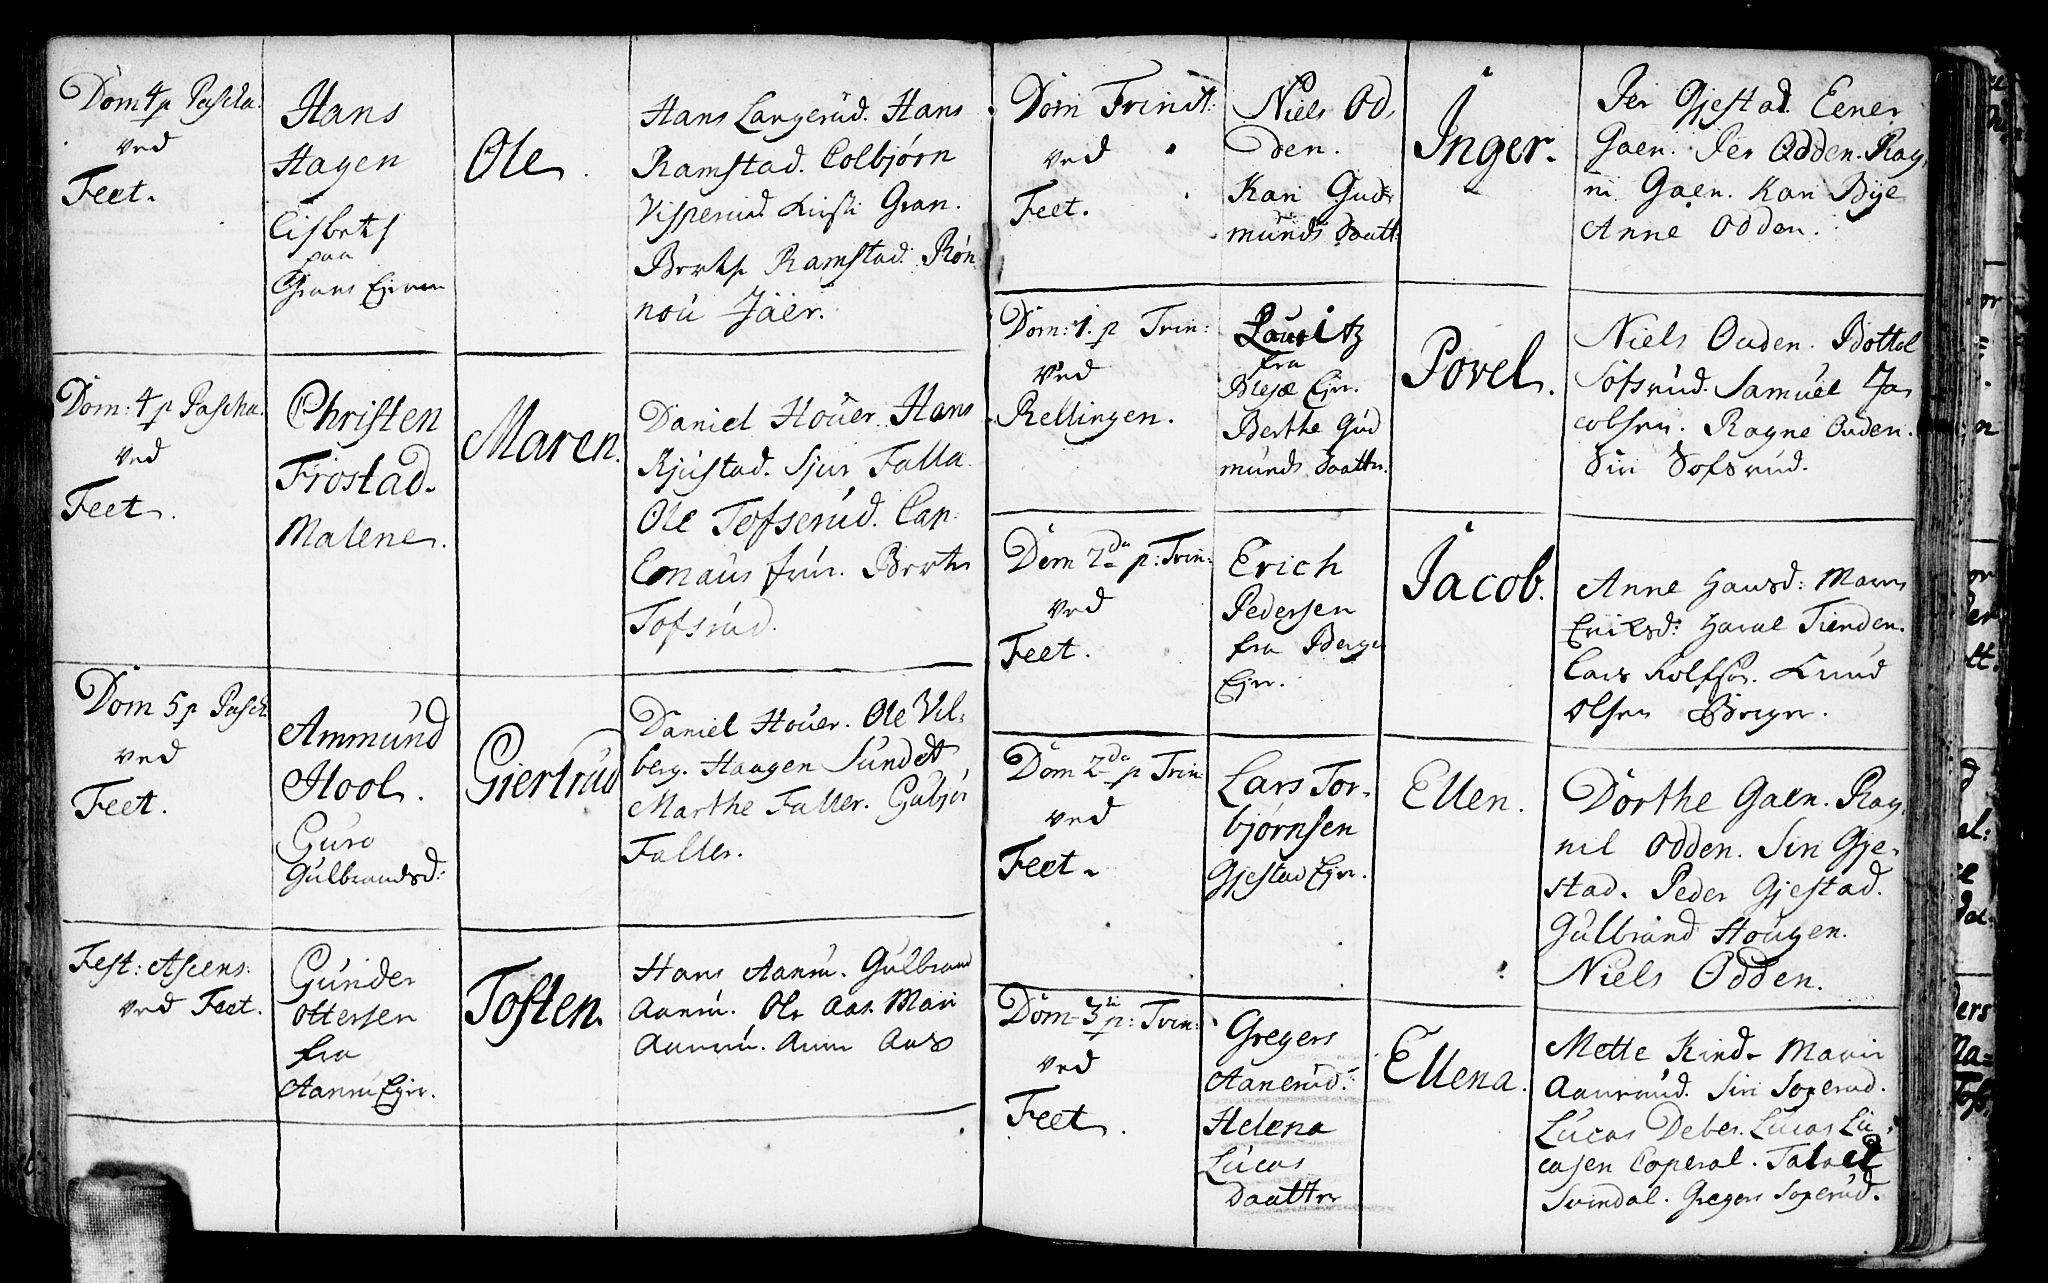 Dom 4 p Pascha.
ved
Feet.
Hans
Hagen
Lisbeth
paa
Grans Ejer
Ole
Hans Langerud. Hans
Ramstad. Colbjørn
Kirsti Gran.
Ramstad. Røn
nou Jäer.
Dom: 4 p Pascha.
ved
Feet.
Christen
Frostad.
Malene.
Maren.
Daniel Houer. Hans
Kjustad. Sjur Falla
Ole Tofserud. Cap:
Emaus frue. Berthe
Tofsrud.
Dom 5 p Pasch
ved
Feet.
Ammund
Hool.
Guro
Gulbrandsd:
Giertrud
Daniel Houer. Ole Vil,
berg. Haagen Sundet
Marthe Faller. Gubjør
Faller.
Fest: Ascens:
ved Feet.
Gunder
Ottersen
fra
Aanru Ejer.
Tosten.
Hans Aanru. Gulbrand
Aanru. Ole Aas. Mari
Aanru. Anne Aas
Dom Trinit:
ved
Feet.
Niels Od,
den.
Kari Gud
munds Daatt:
Inger.
Per Gjestad. Eener
Gaen. Per Odden. Rag,
ni Gaen. Kari Bye
Anne Odden.
Dom: 1. p Trin:
ved
Rellingen.
Lauritz
fra
Ejer.
Berthe Gud
munds Daatter.
Povel.
Niels Ouden. Bottel
Sofsrud. Samuel Ja
cobsen. Ragne Ouden.
Siri Sofsrud.
Dom 2da p: Trin:
ved
Feet.
Erich
Pedersen
fra Berger
Ejer.
Jacob.
Anne Hansd: Maren
Eriksd: Haral Tienden.
Lars Rolfsøn. Knud
Olsen Berger.
Dom 2da p Trin
ved
Feet.
Lars Tor-
bjørnsen
Gjestad Ejer.
Ellen.
Dorthe Gaen. Rag,
nil Odden. Siri Gje,
stad. Peder Gjestad.
Gulbrand Hougen.
Niels Odden.
Dom 3tii p: Trin:
ved
Feet.
Gregers
Aanerud.
Helena
Lucas
Daatter
Ellena.
Mette Kind. Maria
Aanerud. Siri Soperud.
Lucas Debes. Lucas Lu,
casen Coperal.
Svindal. Gregers Soperud.